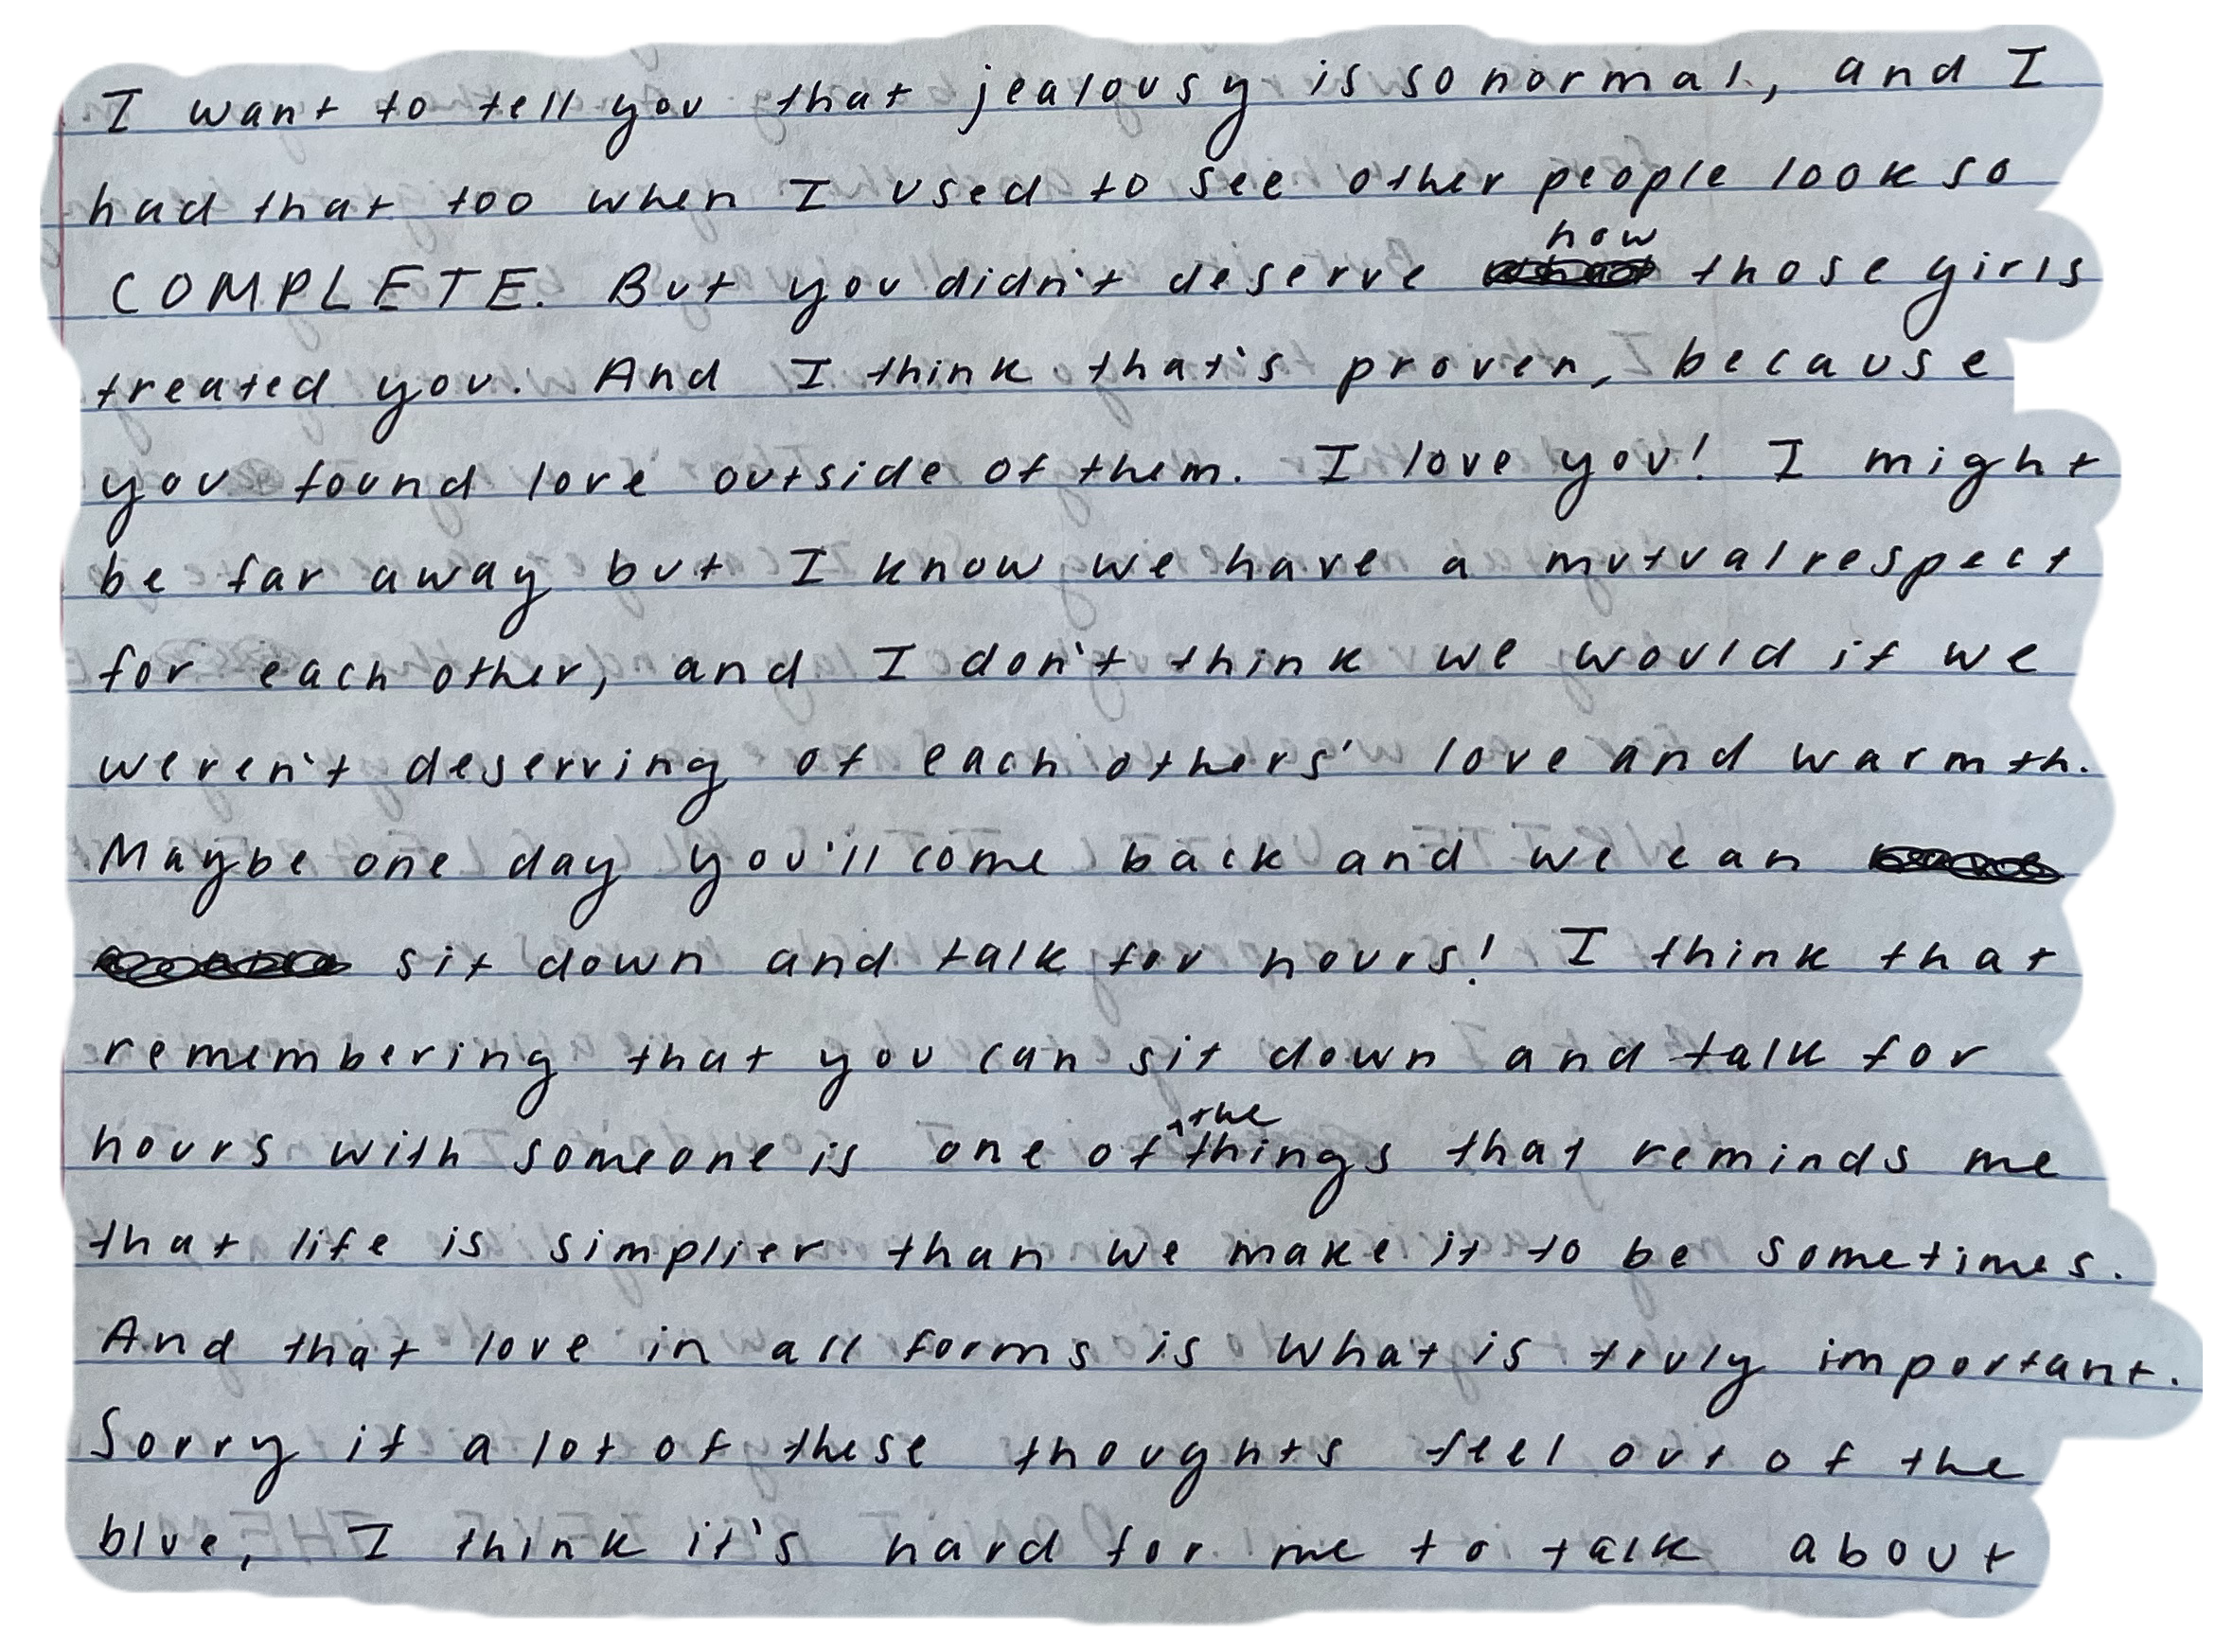 I want to tell you that jealousy is so normal, and I
had that too when I used to see other people look so
COMPLETE. But you didn't deserve how those girls
treated you. And I think that's proven, because
you found love outside of them. I love you! I might
be far away but I know we have a mutual respect
for each other, and I don't think we would if we
weren't deserving of each others' love and warmth.
Maybe one day you'll come back and we can
sit down and talk for hours! I think that
remembering that you can sit down and talk for
hours with someone is one of the things that reminds me
that life is simplier than we make it to be sometimes.
And that love in all forms is what is truly important.
Sorry if a lot of these thoughts feel out of the
blue, I think it's hard for me to talk about